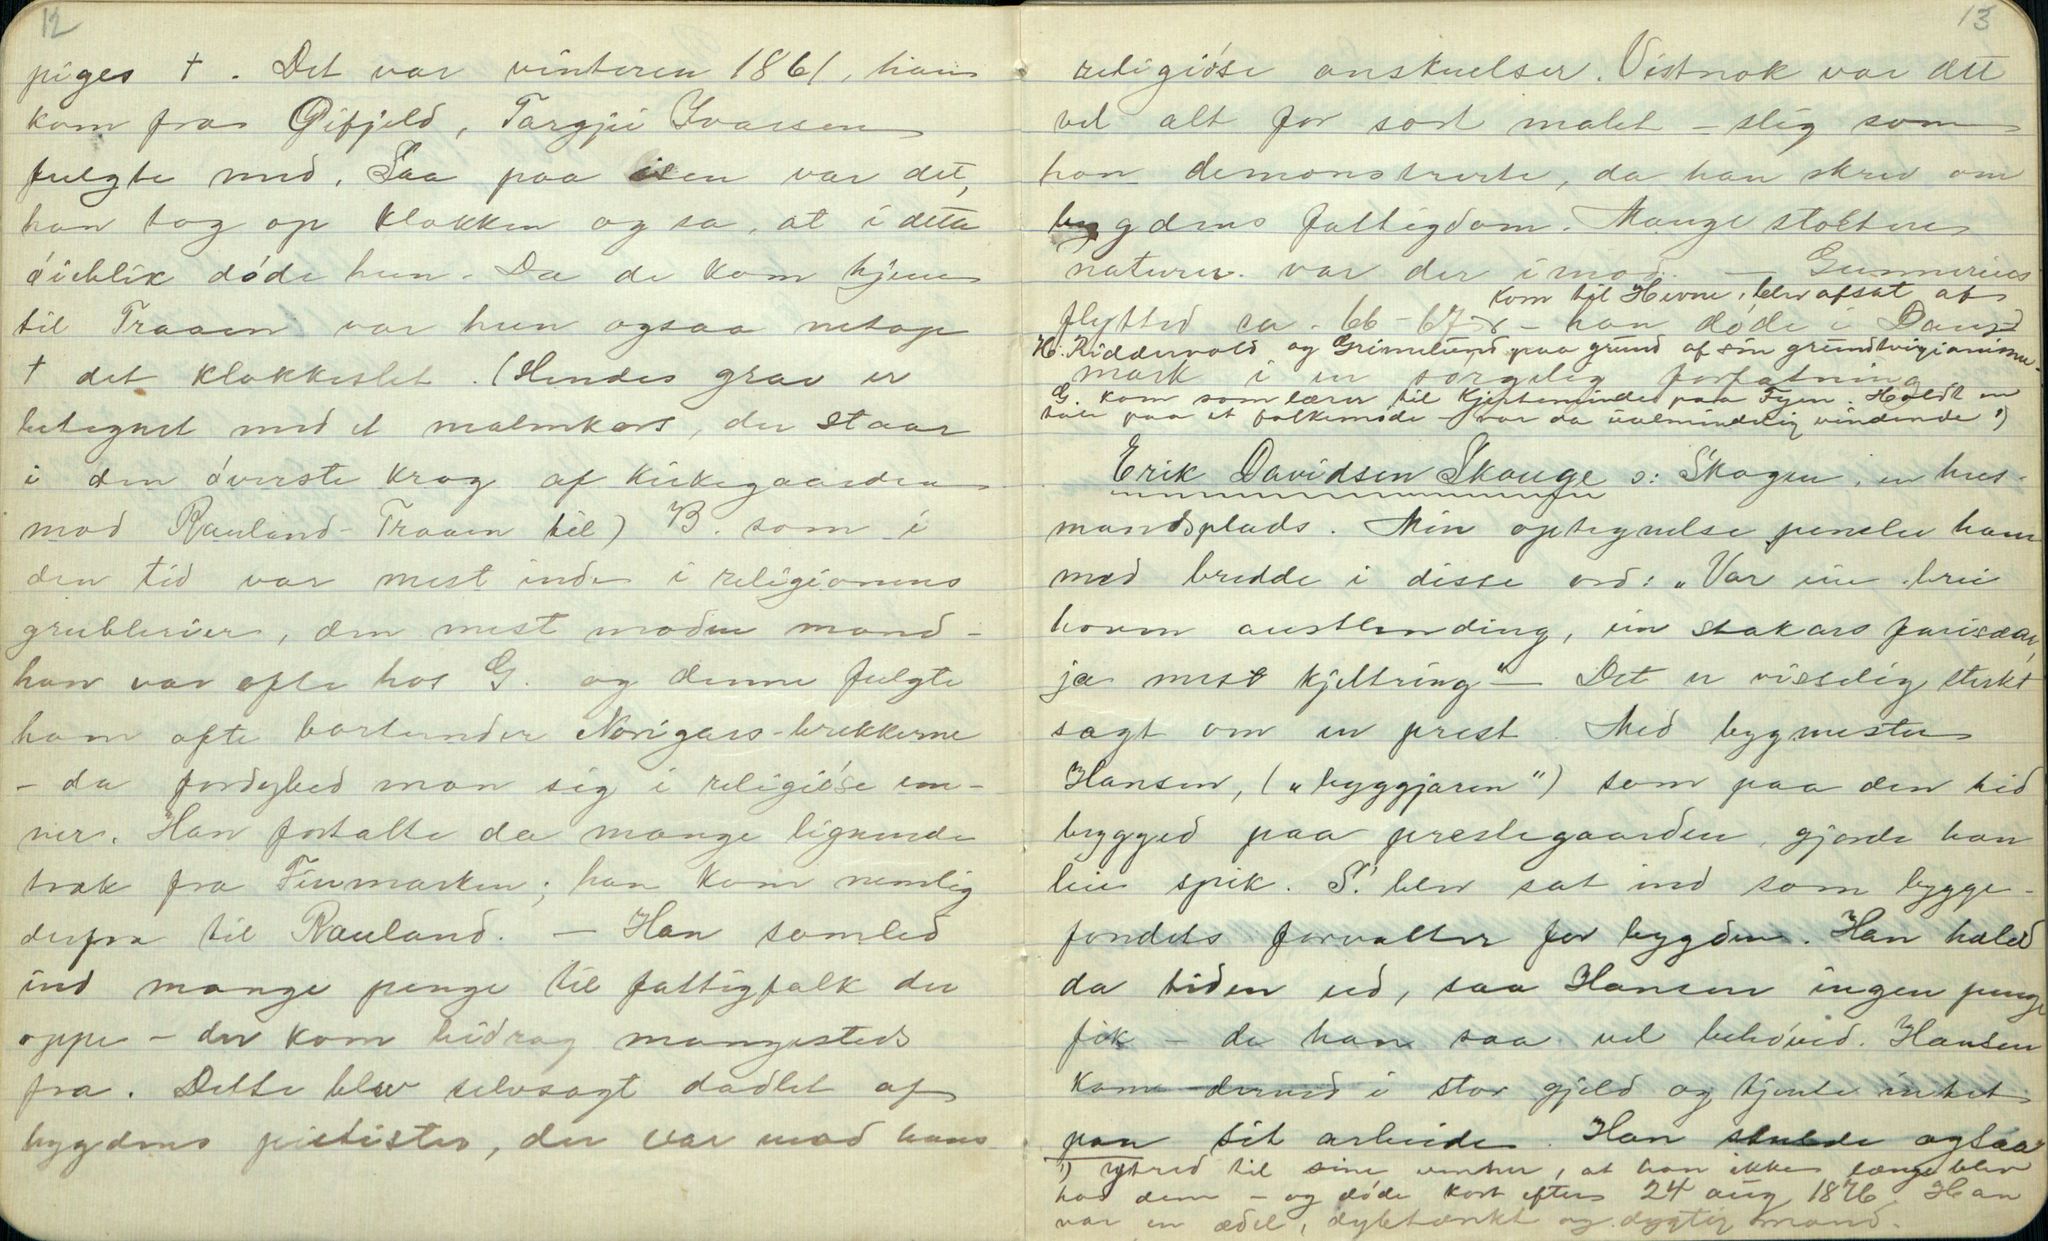 12
piges †. Det var vinteren 1861, han
kom fra Øifjeld, Targjei Ivarsen
fulgte med. Saa paa isen var det,
han tog op klokken og sa, at i dette
øieblik døde hun. Da de kom hjem
til Traaen var hun ogsaa netop
† det klokkeslet. (Hendes grav er
betegnet med et malmkors, der staar
i den øverste krog af kirkegaarden
mod Rauland-Traaen til) B. som i
den tid var mest inde i religionens
grublerier, den mest modne mand -
han var ofte hos G. og denne fulgte
ham ofte bortunder Norigars-brekkerne
- da fordybed man sig i religiøse em-
ner. Han fortalte da mange lignende
træk fra Finmarken; han kom nemlig
derfra til Rauland. — Han samled
ind mange penge til fattigfolk der
oppe - der kom bidrag mangesteds
fra. Dette blev selvsagt dadlet af
bygdens pietister, der var mod hans
13
religiøse anskuelser. Vistnok var det
vel alt for sort malet - slig som
han demonstrerte, da han skrev om
bygdens fattigdom. Mange stoltere
naturer var der imod. — Gunnerius
kom til Hevne, blev afsat af
flytted ca. 66-67 - han døde i Dan-
H. Riddervold og Grimelund paa grund af sin grundtvigianisme.
mark i en sørgelig forfatning
G. kom som lærer til Kjerteminde paa Fyen. Holdt en
tale paa et folkemøde - var da ualmindelig vindende ¹)
Erik Davidsen Skauge ɔ: Skogen, en hus-
mandsplads. Min optegnelse pensler ham
med bredde i disse ord: „Var ein brei
hovm austlending, ein stakars farisæar,
ja mest kjeltring" — Det er visselig sterkt
sagt om en prest. Med bygmester
Hansen, („byggjaren") som paa den tid
bygged paa prestegaarden, gjorde han
lei spik. S. blev sat ind som bygge-
fondets forvalter for bygden. Han haled
da tiden ud, saa Hansen ingen penge
fik - de han saa vel behøved. Hansen
kom derved i stor gjeld og tjente intet
paa sit arbeide. Han skulde ogsaa
¹) ytred til sine venner, at han ikke længe blev
hos dem - og døde kort efter 24 aug 1876. Han
var en ædel, dybtænkt og dygtig mand.